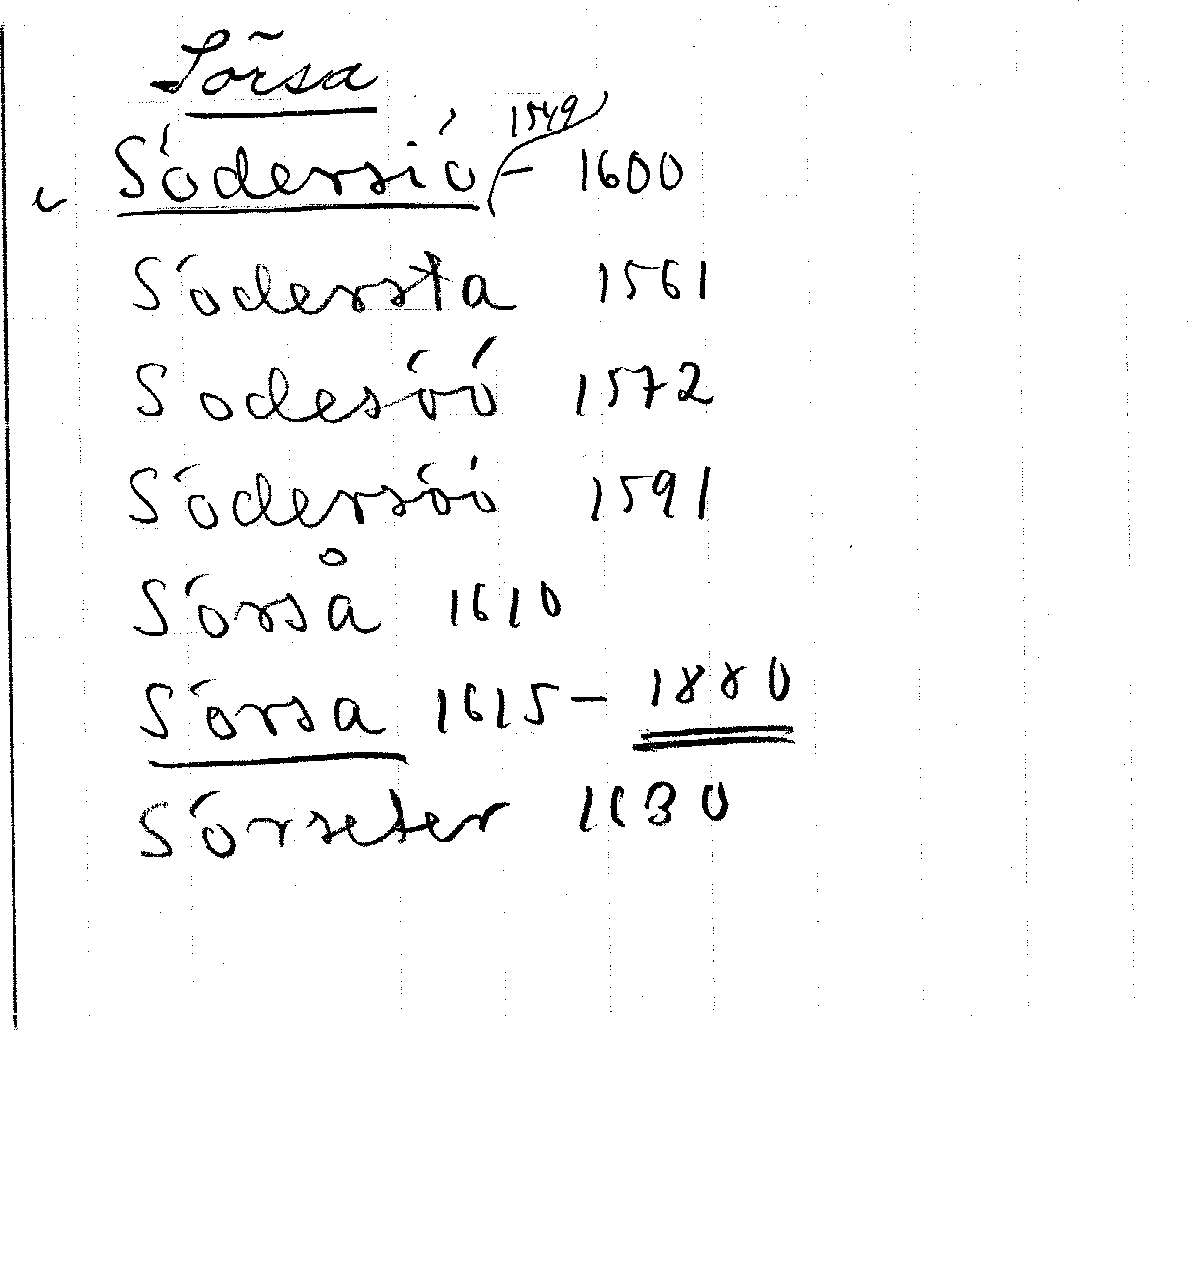 Sõrsa
Södersiö 1549 - 1600
Södersta 1561
Sodesöö 1572
Södersöö 1591
Sörså 1610
Sörsa 1615 - 1880
Sörseter 1630